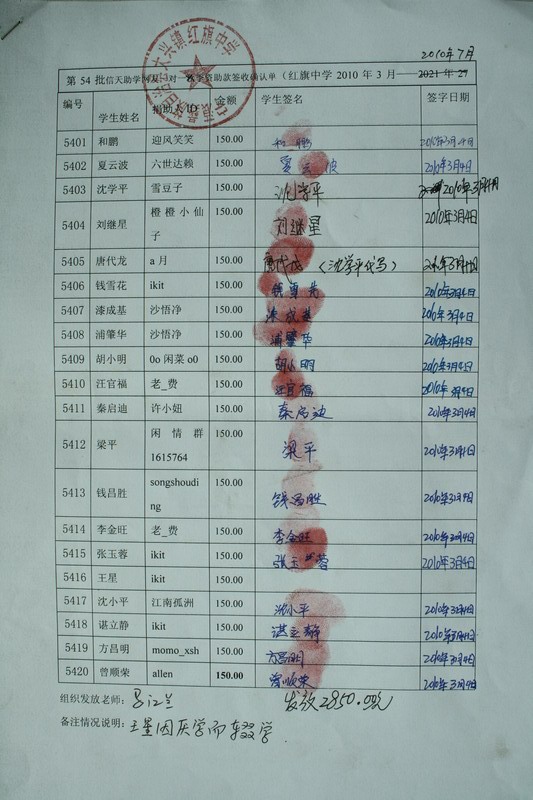 2010年7月
第 54 批信天助学网友一对一 资助款签收确认单（红旗中学 2010 年 3 月——2021 年 27
大兴镇红旗中学
编号 学生姓名 捐助人 ID 金额 学生签名 签字日期
5401 和鹏 迎风笑笑 150.00 和鹏 2010年3月4日
5402 夏云波 六世达赖 150.00 夏云波 2010年3月4日
5403 沈学平 雪豆子 150.00 沈学平 2010年3月4日
5404 刘继星 橙橙小仙子 150.00 刘继星 2010年3月4日
5405 唐代龙 a 月 150.00 唐代龙（沈学平代写） 2010年3月4日
5406 钱雪花 ikit 150.00 钱雪花 2010年3月4日
5407 漆成基 沙悟净 150.00 漆成基 2010年3月4日
5408 浦肇华 沙悟净 150.00 浦肇华 2010年3月4日
5409 胡小明 0o 闲菜 o0 150.00 胡小明 2010年3月4日
5410 汪官福 老_费 150.00 汪官福 2010年3月4日
5411 秦启迪 许小妞 150.00 秦启迪 2010年3月4日
5412 梁平 闲情群 1615764 150.00 梁平 2010年3月4日
5413 钱昌胜 songshouding 150.00 钱昌胜 2010年3月4日
5414 李金旺 老_费 150.00 李金旺 2010年3月4日
5415 张玉蓉 ikit 150.00 张玉蓉 2010年3月4日
5416 王星 ikit 150.00
5417 沈小平 江南孤洲 150.00 沈小平 2010年3月4日
5418 谌立静 ikit 150.00 谌立静 2010年3月4日
5419 方昌明 momo_xsh 150.00 方昌明 2010年3月4日
5420 曾顺荣 allen 150.00 曾顺荣 2010年3月4日
组织发放老师： 江兰 发放2850.00元
备注情况说明：王星因厌学而辍学